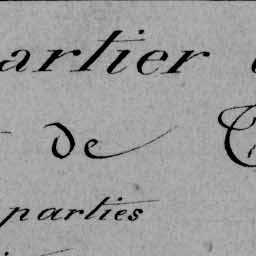 artier
de
parties